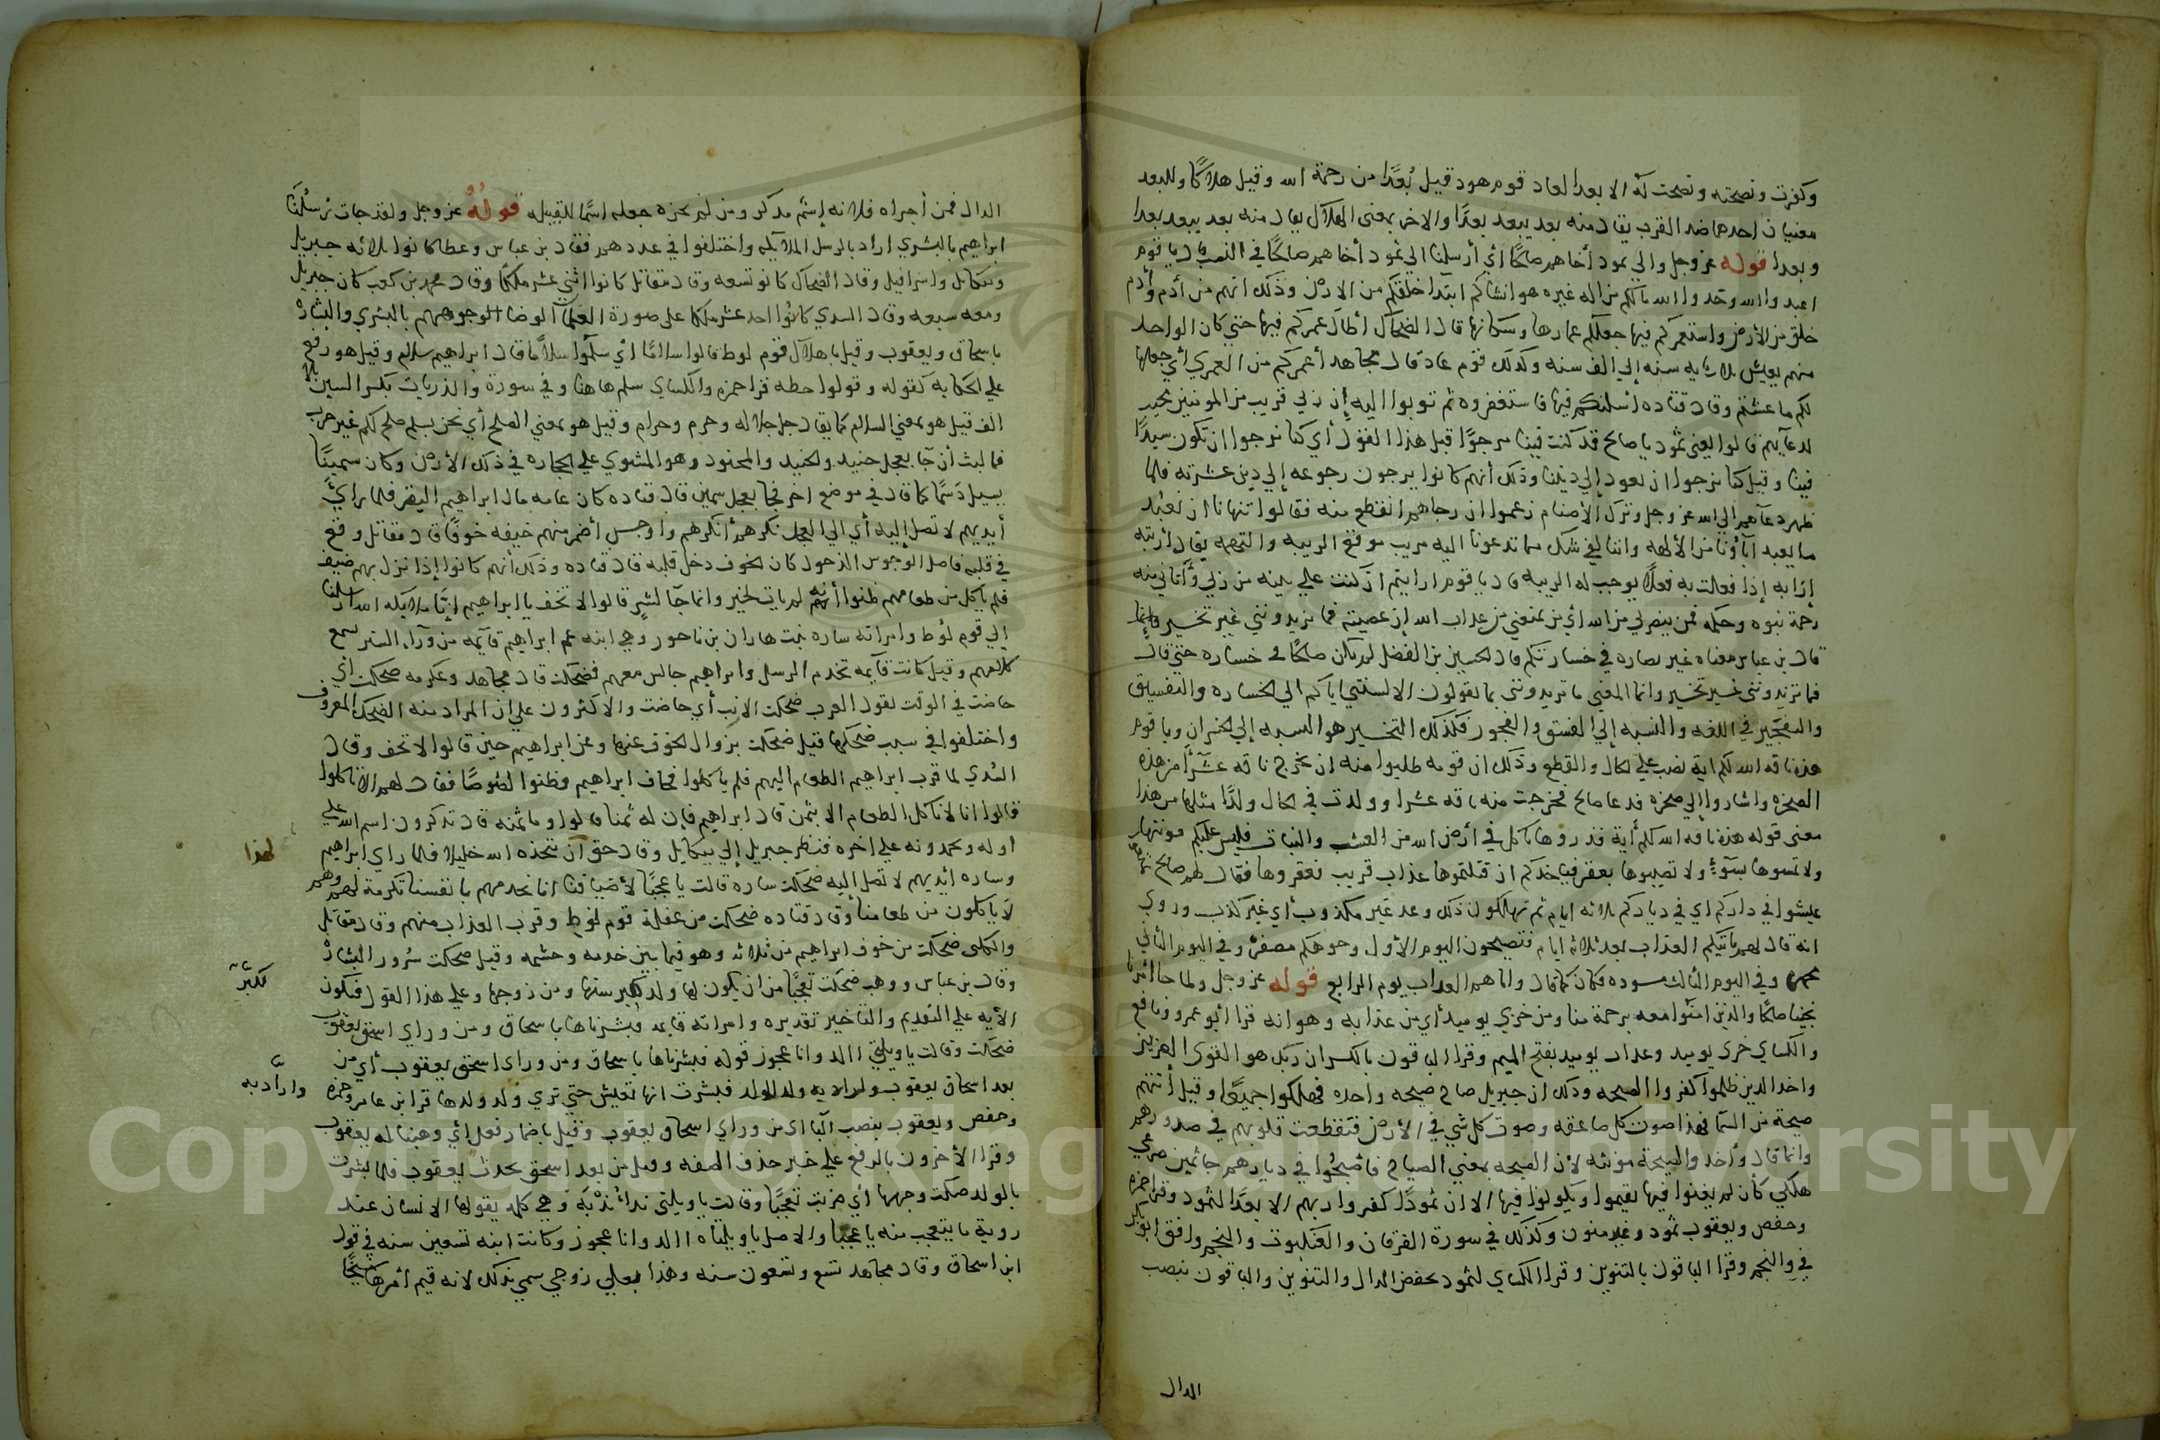 وكفرت ونصحته ونصحت له الا بعدا لعاد قوم هود قيل بُعْدًا من رحمة الله وقيل هلاكًا وللبعد
معنيان احدهما ضد القرب يقال منه بعد يبعد بعدًا والاخر بمعنى الهلاك يقال منه بعد يبعد بعدا
وبعدا قوله عز وجل والي ثمود أخاهم صالحًا أي أرسلنا الي ثمود أخاهم صالحًا في النسب قال يا قوم
اعبدوا الله وحدوا الله ما لكم من اله غيره هو انشاكم ابتدا خلقكم من الارض وذلك انهم من أدم وأدم
خلق من الأرض واستعمركم فيها جعلكم عمارها وسكانها قال الضحاك أطال عمركم فيها حتي كان الواحد
منهم يعيش ثلاثمايه سنه إلي الف سنه وكذلك قوم عاد قال مجاهد أعمركم من العمري أي جعلها
لكم ما عشتم وقال قتاده أسكنكم فيها فاستغفروه ثم توبوا اليه إن ربي قريب من المومنين مجيب
لدعآيهم قالوا يعني ثمود يا صالح قد كنت فينا مرجوًا قبل هذا القول أي كنا نرجوا ان تكون سيدًا
فينا وقيل كنا نرجوا ان تعود إلي ديننا وذلك أنهم كانوا يرجون رجوعه إلي دين عشرته فلما
ظهر دعآهم الي الله عز وجل وترك الأصنام زعموا ان رجاهم انقطع منه فقالوا تنهانا ان نعبد
ما يعبد آباؤنا من الألهه واننا لفي شك مما تدعونا اليه مريب موقع الريبه والتهمه يقال أربته
إرابه إذا فعلت به فعلًا يوجب له الريبه قال يا قوم ارايتم ان كنت علي بينه من ربي وآتاني منه
رحمة نبوه وحكمه فمن ينصرني من الله أي من يمنعني من عذاب الله إن عصيته فما تزيدونني غير تخسير
قال بن عباس معناه غير بصاره في خسارتكم قال الحسين بن الفضل لم يكن صالحًا في خساره حتي قال
فما تزيدونني غير تخسير وانما المعني ما تزيدونني بما تقولون الا نسبتي اياكم الي الخساره والتفسيق
والتفجير في اللغه والنسبه إلي الفسق والفجور فكذلك التخسير هو النسبه إلي الخسران ويا قوم
هذه ناقه الله لكم اية نصب علي الحال والقطع وذلك ان قومه طلبوا منه ان يخرج ناقه عشرآ من هذه
الصخره واشاروا إلي صخره فدعا صالح فخرجت منه ناقه عشرا وولدت في الحال ولدًا مثلها من هذا
معنى قوله هذه ناقه الله لكم أية فذروها تاكل في أرض الله من العشب والنبات فليس عليكم مونتها
ولا تمسوها بسوءٍ ولا تصيبوها بعقر فياخذكم ان قتلتموها عذاب قريب فعقروها فقال لهم صالح تمتعوا
عليشوا في داركم اي في دياركم ثلاثه ايام ثم تهلكون ذلك وعد غير مكذوب أي غير كذب وروي
انه قال لهم ياتيكم العذاب بعد ثلاثه ايام فتصبحون اليوم الأول وجوهكم مصفره وفي اليوم الثاني
محمره وفي اليوم الثالث مسوده فكان كما قال واتاهم العذاب يوم الرابع قوله عز وجل ولما جا أمرنا
نجينا صالحًا والذين امنوا معه برحمة منا ومن خزي يوميذ أي من عذابه وهوانه قرا أبو عمرو ونافع
والكساي خزي يوميد وعذاب يوميد بفتح الميم وقرا الباقون بالكسر ان ربك هو القوي العزيز
واخذ الذين ظلموا كفروا الصيحه وذلك ان جبريل صاح صيحه واحده فهلكوا جميعًا وقيل أتتهم
صيحة من السما فيها صوت كل صاعقه وصوت كل شي في الأرض فتقطعت قلوبهم في صدورهم
وانما قال وأخذ والصيحة مونثه لأن الصيحه بمعني الصياح فاصبحوا في ديارهم جاثمين صرعي
هلكي كأن لم يغنوا فيها يقيموا ويكونوا فيها الا ان ثمودًا كفروا ربهم الا بعدًا لثمود وقرا حمزه
وحفص ويعقوب ثمود وغير منون وكذلك في سورة الفرقان والعنكبوت والنجم وافق ابو بكر
في والنجم وقرا الباقون بالتنوين وقرا الكساي لثمود بخفض الدال والتنوين والباقون بنصب
الدال
الدال فمن أجراه فلانه إسم مذكر ومن لم يجزه جعله اسمًا للقبيله قوله عز وجل ولقد جات رسُلُنا
ابراهيم بالبشري اراد بالرسل الملآيكه واختلفوا في عددهم فقال بن عباس وعطا كانوا ثلاثه جبريل
وميكايل واسرافيل وقال الضحاك كانو تسعه وقال مقاتل كانوا اثني عشر ملكًا وقال محمد بن كعب كان جبريل
ومعه سبعه وقال السدي كانوا احد عشر ملكا علي صورة الغلمان الوضا الوجوههم بالبشري والبشارة
باسحاق ويعقوب وقيل باهلاك قوم لوط قالوا سلامًا أي سلّموا سلامًا قال ابراهيم سلام وقيل هو رفع
علي الحكايه كقوله وقولوا حطه قرا حمزه والكساي سلم هاهنا وفي سورة والذريات بكسر السين بلا
الف قيل هو بمعني السلام كما يقال حل وحلال وحرم وحرام وقيل هو بمعني الصلح أي نحن سلم صلح لكم غير حرب
فما لبث ان جآ بعجل حنيد والحنيد والمحنود وهو المشوي علي الحجاره في ذلك الأرض وكان سمينًا
يسيل دَسَمًا كما قال في موضع اخر فجا بعجل سمين قال قتاده كان عامه مال ابراهيم البقر فلما رايَ
أيديهم لا تصل إليه أي الي العجل نكرهم أنكرهم واوجس أضمر منهم خيفه خوفًا قال مقاتل وقع
في قلبه فاصل الوجوس الدخول كان الخوف دخل قلبه قال قتاده وذلك أنهم كانوا إذا نزل بهم ضيف
فلم ياكل من طعامهم ظنوا أنه لم يات لخير وانما جآ لشرٍ قالوا لا تخف يا ابراهيم إنا ملايكه الله أرسلنا
إلي قوم لوُط وامراته ساره بنت هاران بن ناحور وهي ابنه عم ابراهيم قآيمه من ورآء الستر تسمع
كلامهم وقيل كانت قآيمه تخدم الرسل وابراهيم جالس معهم فضحكت قال مجاهد وعكرمه ضحكت أي
حاضت في الوقت تقول العرب ضحكت الارنب أي حاضت والاكثرون علي ان المراد منه الضحك المعروف
واختلفوا في سبب ضحكها قيل ضحكت بزوال الخوف عنها وعن ابراهيم حين قالوا لا تخف وقال
السُدي لما قرب ابراهيم الطعام اليهم فلم ياكلوا فخاف ابراهيم وظنوا لصُوصًا فقال لهم الا تاكلوا
قالوا انا لا ناكل الطعام الا بثمن قال ابراهيم فإن له ثمنا قالوا وما ثمنه قال تذكرون اسم الله علي
اوله وتحمدونه علي اخره فنظر جبريل إلي ميكايل وقال حق آن يتخذه الله خليلا فلما راي ابراهيم
لهذا
وساره أيديهم لا تصل أليه ضحكت ساره قالت يا عجبًا لأضيافنا انا نخدمهم بانفسنا تكرمة لهم وهم
لا ياكلون من طعامنا وقال قتاده ضحكت من غفلة قوم لوُط وقرب العذاب منهم وقال مقاتل
والكلبي ضحكت من خوف ابراهيم من ثلاثه وهو فيما بين خدمه وحشمه وقيل ضحكت سُرور البشارة
وقال بن عباس ووهب ضحكت تعجبًا من ان يكون لها ولد لكبر سنها ومن زوجها وعلي هذا القول فيكون
لكبر
الأيه علي التقديم والتاخير تقديره وامراته قايمه فبشرناها باسحاق ومن وراي اسحق يعقوب
ضحكت وقالت يا ويلتي االد وانا عجوز قوله فبشرناها باسحاق ومن وراي اسحق يعقوب أي من
بعد اسحاق يعقوب ولد الولد فبشرت انها تعيش حتي تري ولد ولدها قرا بن عامر وحمزه
واراد به
وحفص ويعقوب بنصب البآ اي من وراي اسحاق يعقوب وقيل باضمار فعل أي وهبنا له يعقوب
وقرا الأخرون بالرفع علي خبر حذف الصفه وقيل من بعد اسحق يحدث يعقوب فلما بشرت
بالولد صكت وجهها أي ضربت تعجبًا وقالت يا ويلتي ندآ نُدْبَة وهي كلمه يقولها الإنسان عند
روية ما يتعجب منه يا عجبًا والاصل يا ويلتاه االد وانا عجوز وكانت ابنه تسعين سنه في قول
ابن اسحاق وقال مجاهد تسع وتسعون سنه وهذا بعلي زوجي سمي بذلك لانه قيم أمرها شيخًا
Copyright © King Saud University